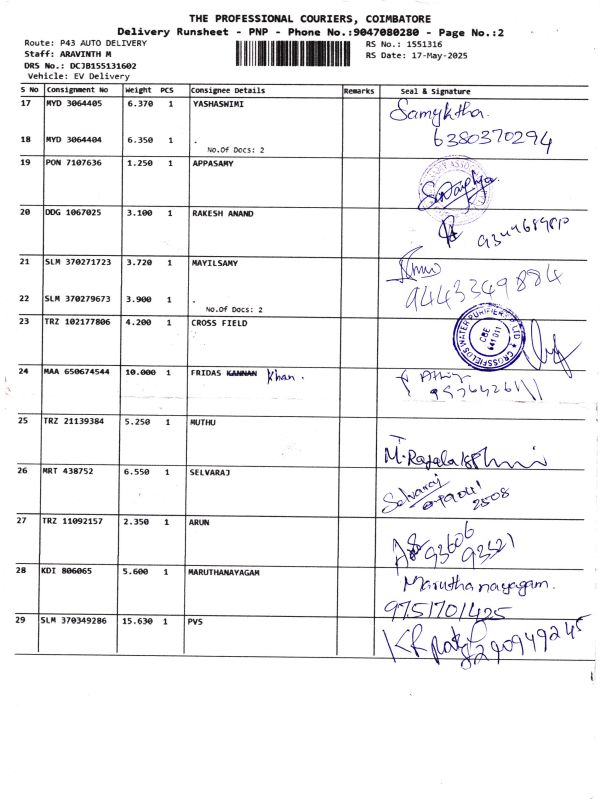 THE PROFESSIONAL COURIERS, COIMBATORE
Delivery Runsheet - PNP - Phone No.:9047080280 - Page No.:2
Route: P43 AUTO DELIVERY
RS No.: 1551316
Staff: ARAVINTH M
RS Date: 17-May-2025
DRS No.: DCJB155131602
Vehicle: EV Delivery
S No Consignment No Weight PCS Consignee Details Remarks Seal & Signature
17 MYD 3064405 6.370 1 YASHASWIMI
Samyktha.
18 MYD 3064404 6.350 1 .
6380370294
No.Of Docs: 2
19 PON 7107636 1.250 1 APPASAMY
20 DDG 1067025 3.100 1 RAKESH ANAND
21 SLM 370271723 3.720 1 MAYILSAMY
22 SLM 370279673 3.900 1 .
9443349884
No.Of Docs: 2
23 TRZ 102177806 4.200 1 CROSS FIELD
CROSSFIELDS WATER PURIFIERS P LTD
CBE
641 011
24 MAA 650674544 10.000 1 FRIDAS KANNAN Khan.
25 TRZ 21139384 5.250 1 MUTHU
26 MRT 438752 6.550 1 SELVARAJ
Selvaraj
2508
27 TRZ 11092157 2.350 1 ARUN
93606
93321
28 KDI 806065 5.600 1 MARUTHANAYAGAM
Marutha nayagam.
9751701425
29 SLM 370349286 15.630 1 PVS
8290949245